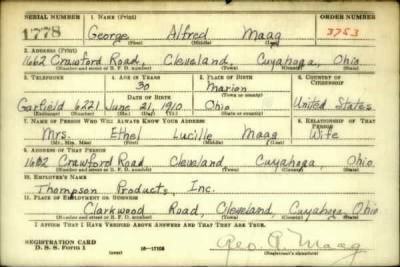 SERIAL NUMBER 1. NAME (Print) ORDER NUMBER
1778 George Alfred Maag 3753
(First) (Middle) (Last)
2. ADDRESS (Print)
1662 Crawford Road, Cleveland, Cuyahoga, Ohio.
(Number and street or R. F. D. number) (Town) (County) (State)
3. TELEPHONE 4. AGE IN YEARS 5. PLACE OF BIRTH 6. COUNTRY OF CITIZENSHIP
30 Marion
DATE OF BIRTH (Town or county)
Garfield 6221 June 21, 1910. Ohio United States
(Exchange) (Number) (Mo.) (Day) (Yr.) (State or country)
7. NAME OF PERSON WHO WILL ALWAYS KNOW YOUR ADDRESS 8. RELATIONSHIP OF THAT PERSON
Mrs. Ethel Lucille Maag Wife
(Mr., Mrs., Miss) (First) (Middle) (Last)
9. ADDRESS OF THAT PERSON
1662 Crawford Road, Cleveland, Cuyahoga, Ohio.
(Number and street or R. F. D. number) (Town) (County) (State)
10. EMPLOYER'S NAME
Thompson Products, Inc.
11. PLACE OF EMPLOYMENT OR BUSINESS
Clarkwood Road, Cleveland, Cuyahoga, Ohio
(Number and street or R. F. D. number) (Town) (County) (State)
I AFFIRM THAT I HAVE VERIFIED ABOVE ANSWERS AND THAT THEY ARE TRUE.
REGISTRATION CARD
D. S. S. Form 1 16-17105 Geo. A. Maag
(Registrant's signature)